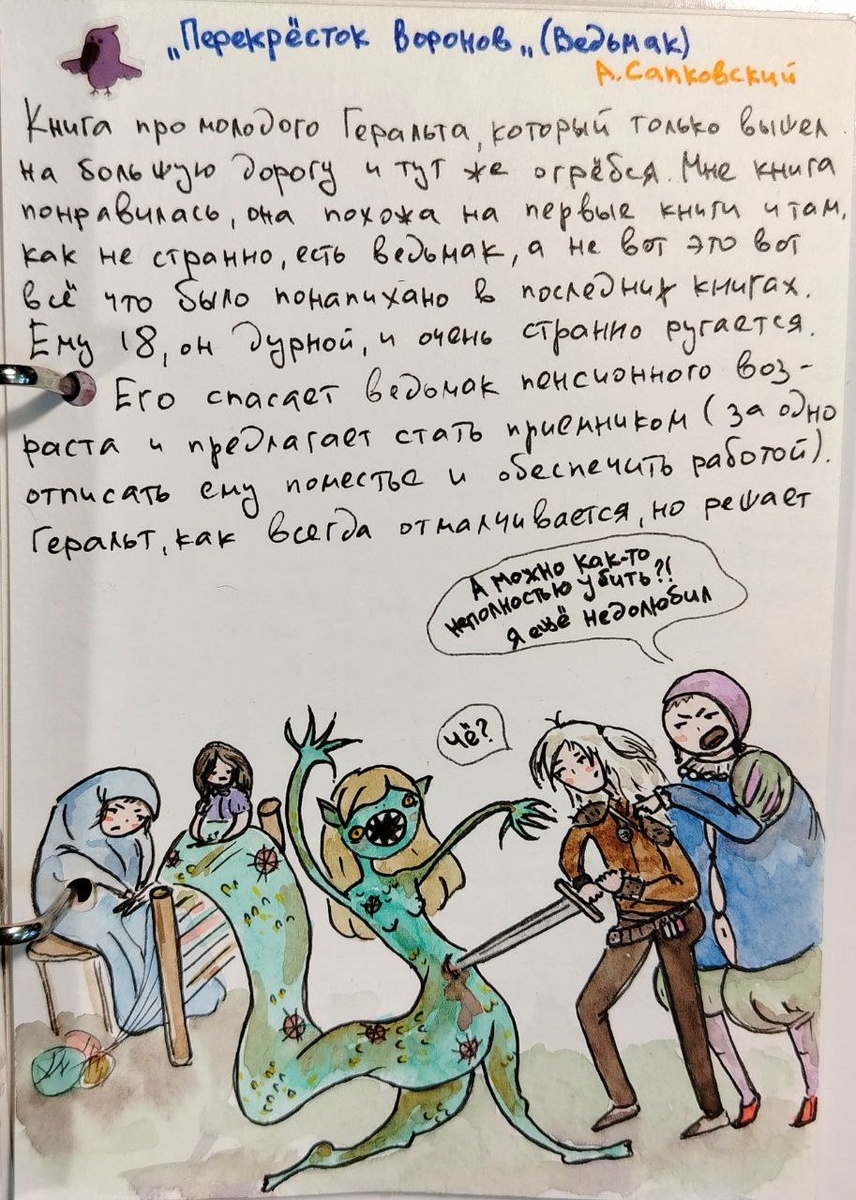 „Перекрёсток Воронов„ (Ведьмак)
А.Сапковский
Книга про молодого Геральта, который только вышел
на большую дорогу и тут же огрёбся. Мне книга
понравилась, она похожа на первые книги и там,
как не странно, есть ведьмак, а не вот это вот
всё что было понапихано в последних книгах.
Ему 18, он дурной, и очень странно ругается.
Его спасает ведьмак пенсионного воз-
раста и предлагает стать приемником (за одно
отписать ему поместье и обеспечить работой).
Геральт, как всегда отмалчивается, но решает
А можно как-то
неполностью убить?!
Я ещё недолюбил
Чё?